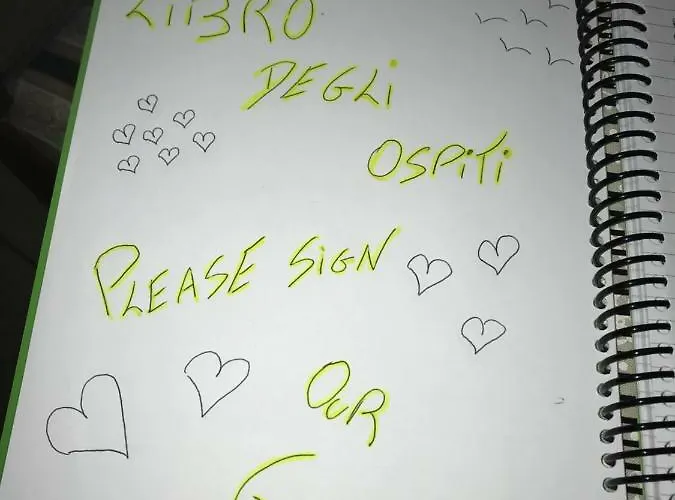 LIBRO
DEGLi
OSPiTi
PLEASE SiGN
OUR